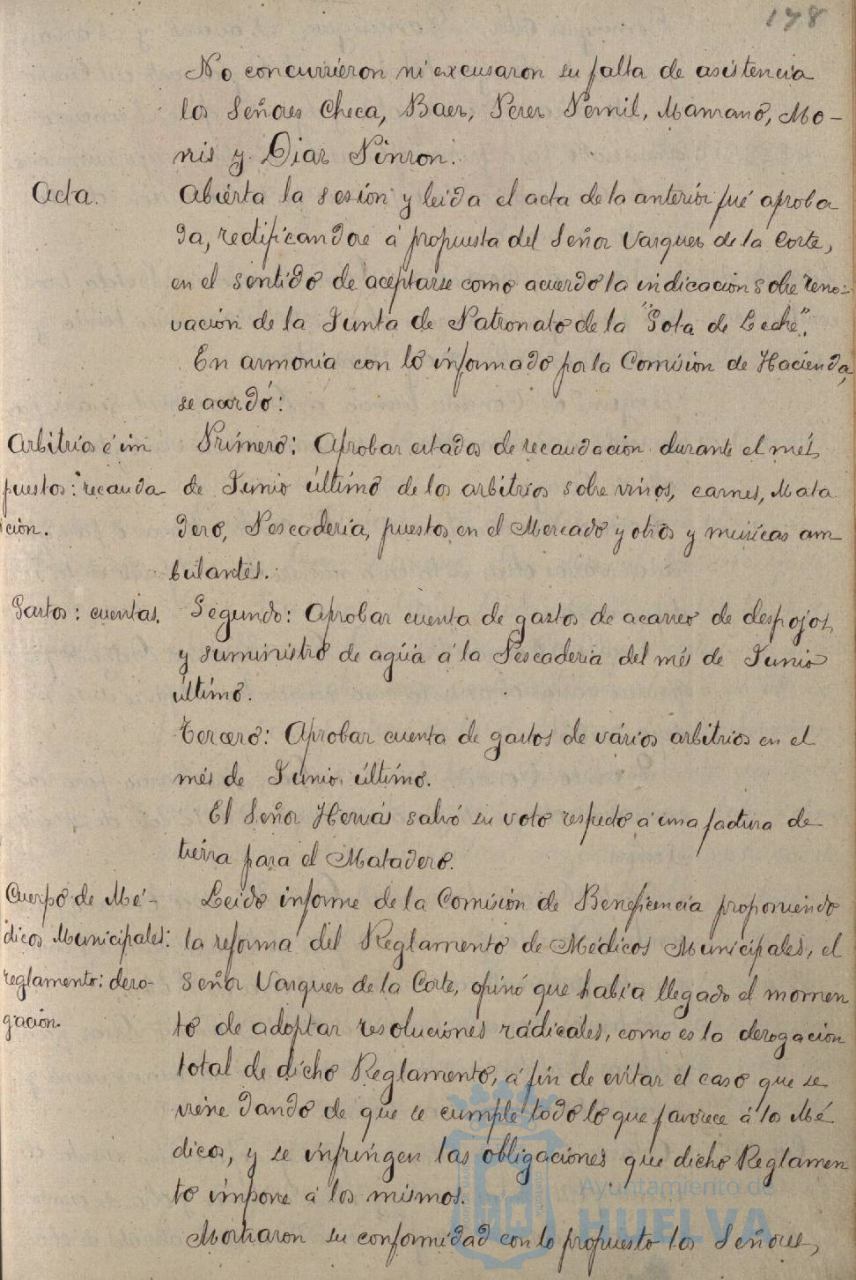 178
No concurrieron ni excusaron su falta de asistencia
los Señores Checa, Baez, Perez Pomil, Manzano, Mo-
nis y Diaz Pinzon.
Acta.
Abierta la sesión y leida el acta de la anterior fué aproba
da, rectificandose á propuesta del Señor Vazquez de la Corte,
en el sentido de aceptarse como acuerdo la indicación sobre reno-
vación de la Junta de Patronato de la "Gota de Leche".
En armonia con lo informado por la Comisión de Hacienda,
se acordó:
Arbitrios é im
puestos: recauda
ción.
Primero: Aprobar estados de recaudación durante el més
de Junio último de los arbitrios sobre vinos, carnes, Mata
dero, Pescaderia, puestos en el Mercado y otros y musicas am
bulantes.
Gastos: cuentas.
Segundo: Aprobar cuenta de gastos de acarreo de despojos,
y suministro de agua á la Pescaderia del més de Junio
último.
Tercero: Aprobar cuenta de gastos de vários arbitrios en el
més de Junio último.
El Señor Hervás salvó su voto respecto á una factura de
tierra para el Matadero.
Cuerpo de Mé-
dicos Municipales:
reglamento: dero-
gación.
Leido informe de la Comisión de Beneficencia proponiendo
la reforma del Reglamento de Médicos Municipales, el
Señor Vazquez de la Corte, opinó que habia llegado el momen
to de adoptar resoluciones radicales, como es la derogación
total de dicho Reglamento, á fin de evitar el caso que se
viene dando de que se cumple todo lo que favorece á los Mé
dicos, y se infringen las obligaciones que dicho Reglamen
to impone á los mismos.
Mostraron su conformidad con lo propuesto los Señores,
Ayuntamiento de
HUELVA